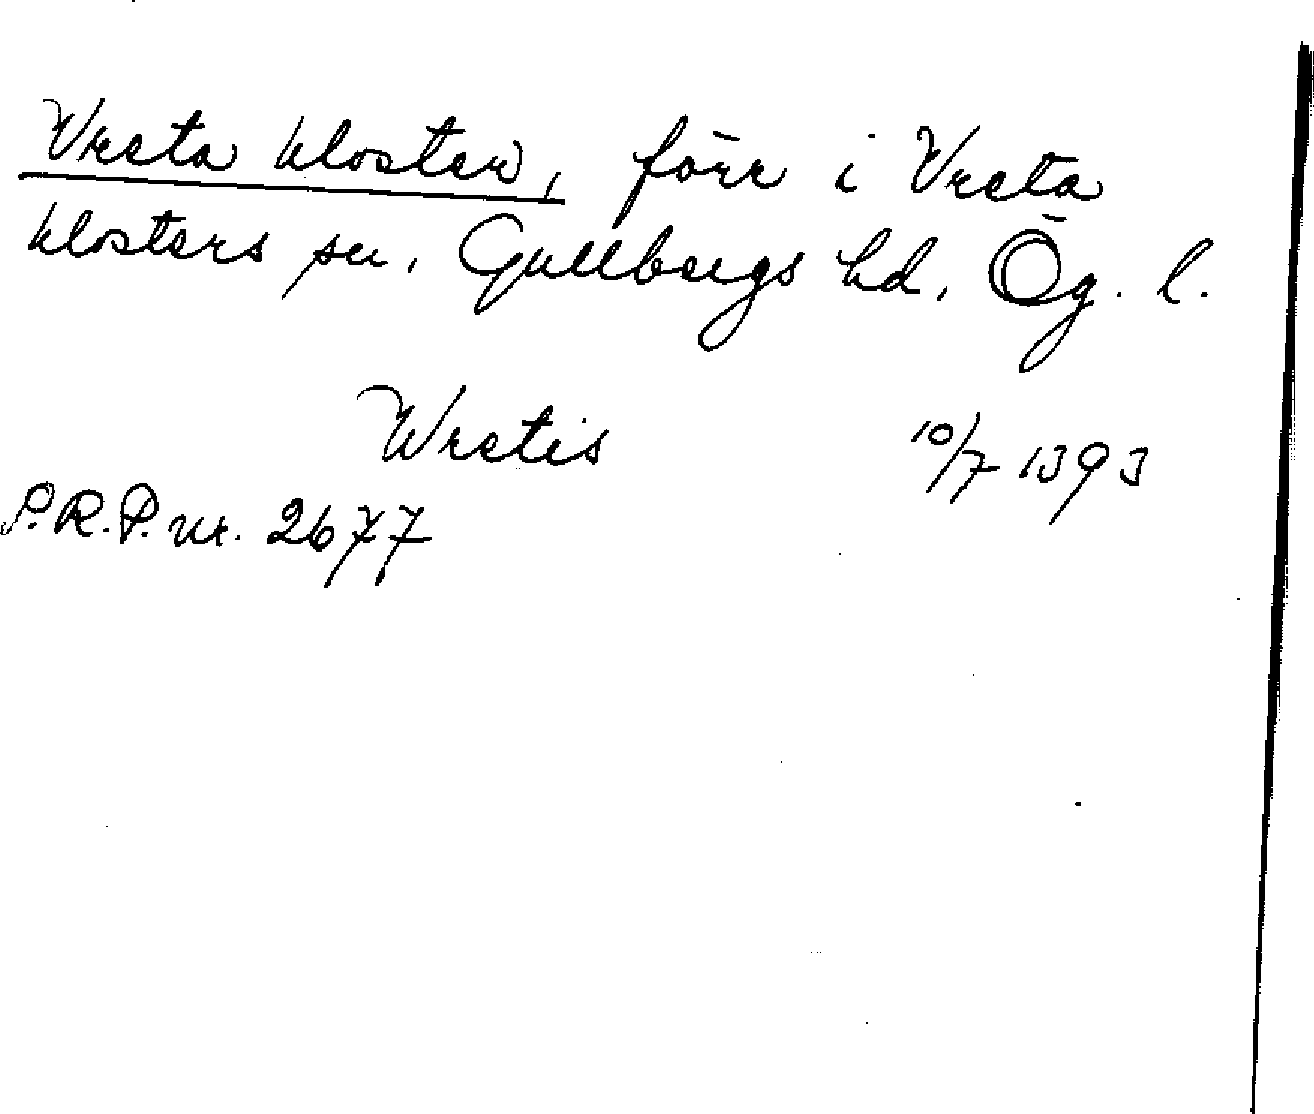 Vreta kloster, förr i Vreta
klosters sn, Gullbergs hd, Ög. l.
Wretis 10/7 1393
S.R.P. nr. 2677